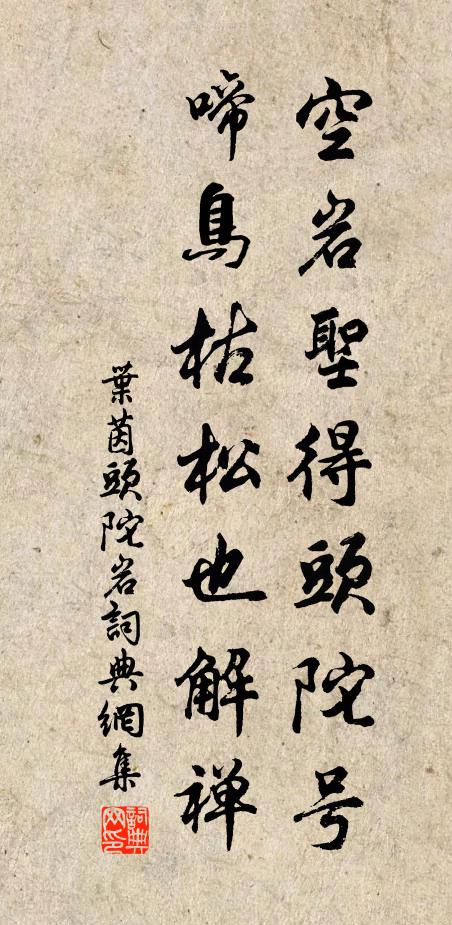 空岩聖得頭陀号
啼鳥枯松也解禅
葉茵頭陀岩詞典網集
詞典網印